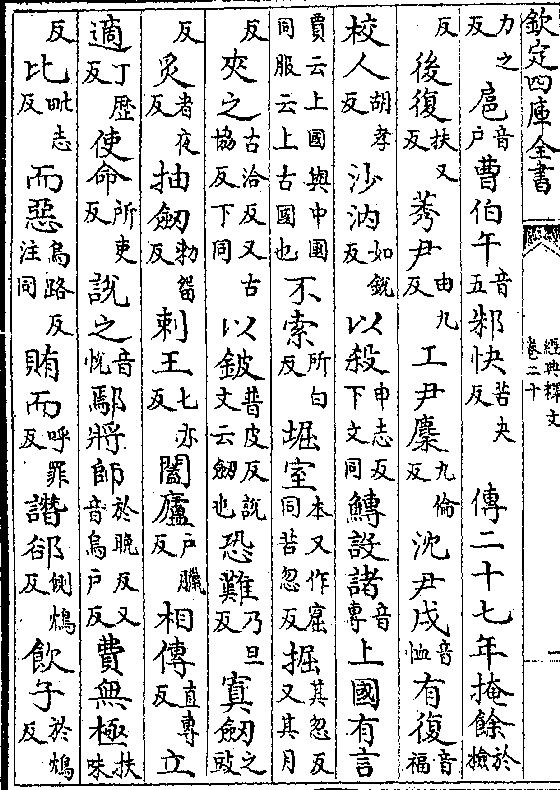 欽定四庫全書 經典釋文 卷二十
力之反扈音戶曹伯午音五邾快苦夬反 傳二十七年掩餘於檢
反後復扶又反莠尹由九反工尹麇九倫反沈尹戌音恤有復音福
校人胡孝反沙汭如銳反以殺申志反下文同鱄設諸音專上國有言
賈云上國與中國同服云上古國也不索所白反堀室本又作窟同苦忽反掘其忽反又其月
反夾之古洽反又古協反下同以鈹普皮反說文云劒也恐難乃旦反寘劒之豉
反炙者夜反抽劒勑留反刺王七亦反闔廬戶臘反相傳直專反立
適丁歷反使命所吏反說之音悅鄢將師於晚反又音烏戶反費無極扶味
反比毗志反而惡烏路反注同賄而呼罪反譖郤側鴆反飲子於鴆反